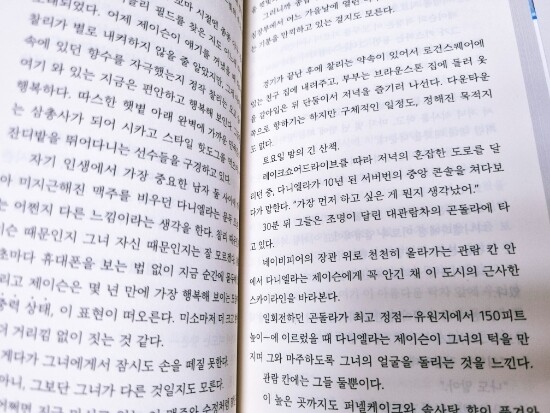 꼬마 시절엔 종종
글리 필드를 찾은 것도
찰리가 별로 내켜하지 않을 줄 알았지만, 그
속에 있던 향수를 자극했는지 정작 찰리는
여기 와 있는 지금은 편안하고 행복해 보인다.
행복하다. 따스한 햇볕 아래 완벽에 가까운
는 삼총사가 되어 시카고 스타일 핫도그를 먹
잔디밭을 뛰어다니는 선수들을 구경하고 있다.
자기 인생에서 가장 중요한 남자 둘 사이에
아 미지근해진 맥주를 비우던 다니엘라는
는 어쩐지 다른 느낌이라는 생각을 한다. 찰리
슨 때문인지 그녀 자신 때문인지는 잘 모르
초마다 휴대폰을 보는 법 없이 지금 순간에
리고 제이슨은 몇 년 만에 가장 행복해 보이는
중력 상태, 이 표현이 떠오른다. 미소마저 더
더 거리낌 없이 짓는 것 같다.
게다가 그녀에게서 잠시도 손을 떼질 못한다.
아니, 그보단 그녀가 다른 것일지도 모른다.
어쩌면 지금 마시고 있는 이 맥주와 수정처럼
그러니까 종합
정장부에서 여느 가을날에 열린
한 기분을 만끽하고 있는 경지도 모른다.
경기가 끝난 후에 찰리는 약속이 있어서 로건스퀘어에
있는 친구 집에 내려주고, 부부는 브라운스톤 집에 들러 옷
을 갈아입은 뒤 단둘이서 저녁을 즐기러 나선다. 다운타운
쪽으로 향하기는 하지만 구체적인 일정도, 정해진 목적지
도 없다.
토요일 밤의 긴 산책.
레이크쇼어드라이브를 따라 저녁의 혼잡한 도로를 달
리던 중, 다니엘라가 10년 된 서버번의 중앙 콘솔을 쳐다보
다가 말한다. “가장 먼저 하고 싶은 게 뭔지 생각났어.”
30분 뒤 그들은 조명이 달린 대관람차의 곤돌라에 타
고 있다.
네이비피어의 장관 위로 천천히 올라가는 관람 칸 안
에서 다니엘라는 제이슨에게 꼭 안긴 채 이 도시의 근사한
스카이라인을 바라본다.
일회전하던 곤돌라가 최고 정점—유원지에서 150피트
높이—에 이르렀을 때 다니엘라는 제이슨이 그녀의 턱을 만
지며 그와 마주하도록 그녀의 얼굴을 돌리는 것을 느낀다.
관람 칸에는 그들 둘뿐이다.
이 높은 곳까지도 퍼넬케이크와 솜사탕 향이 풍겨와